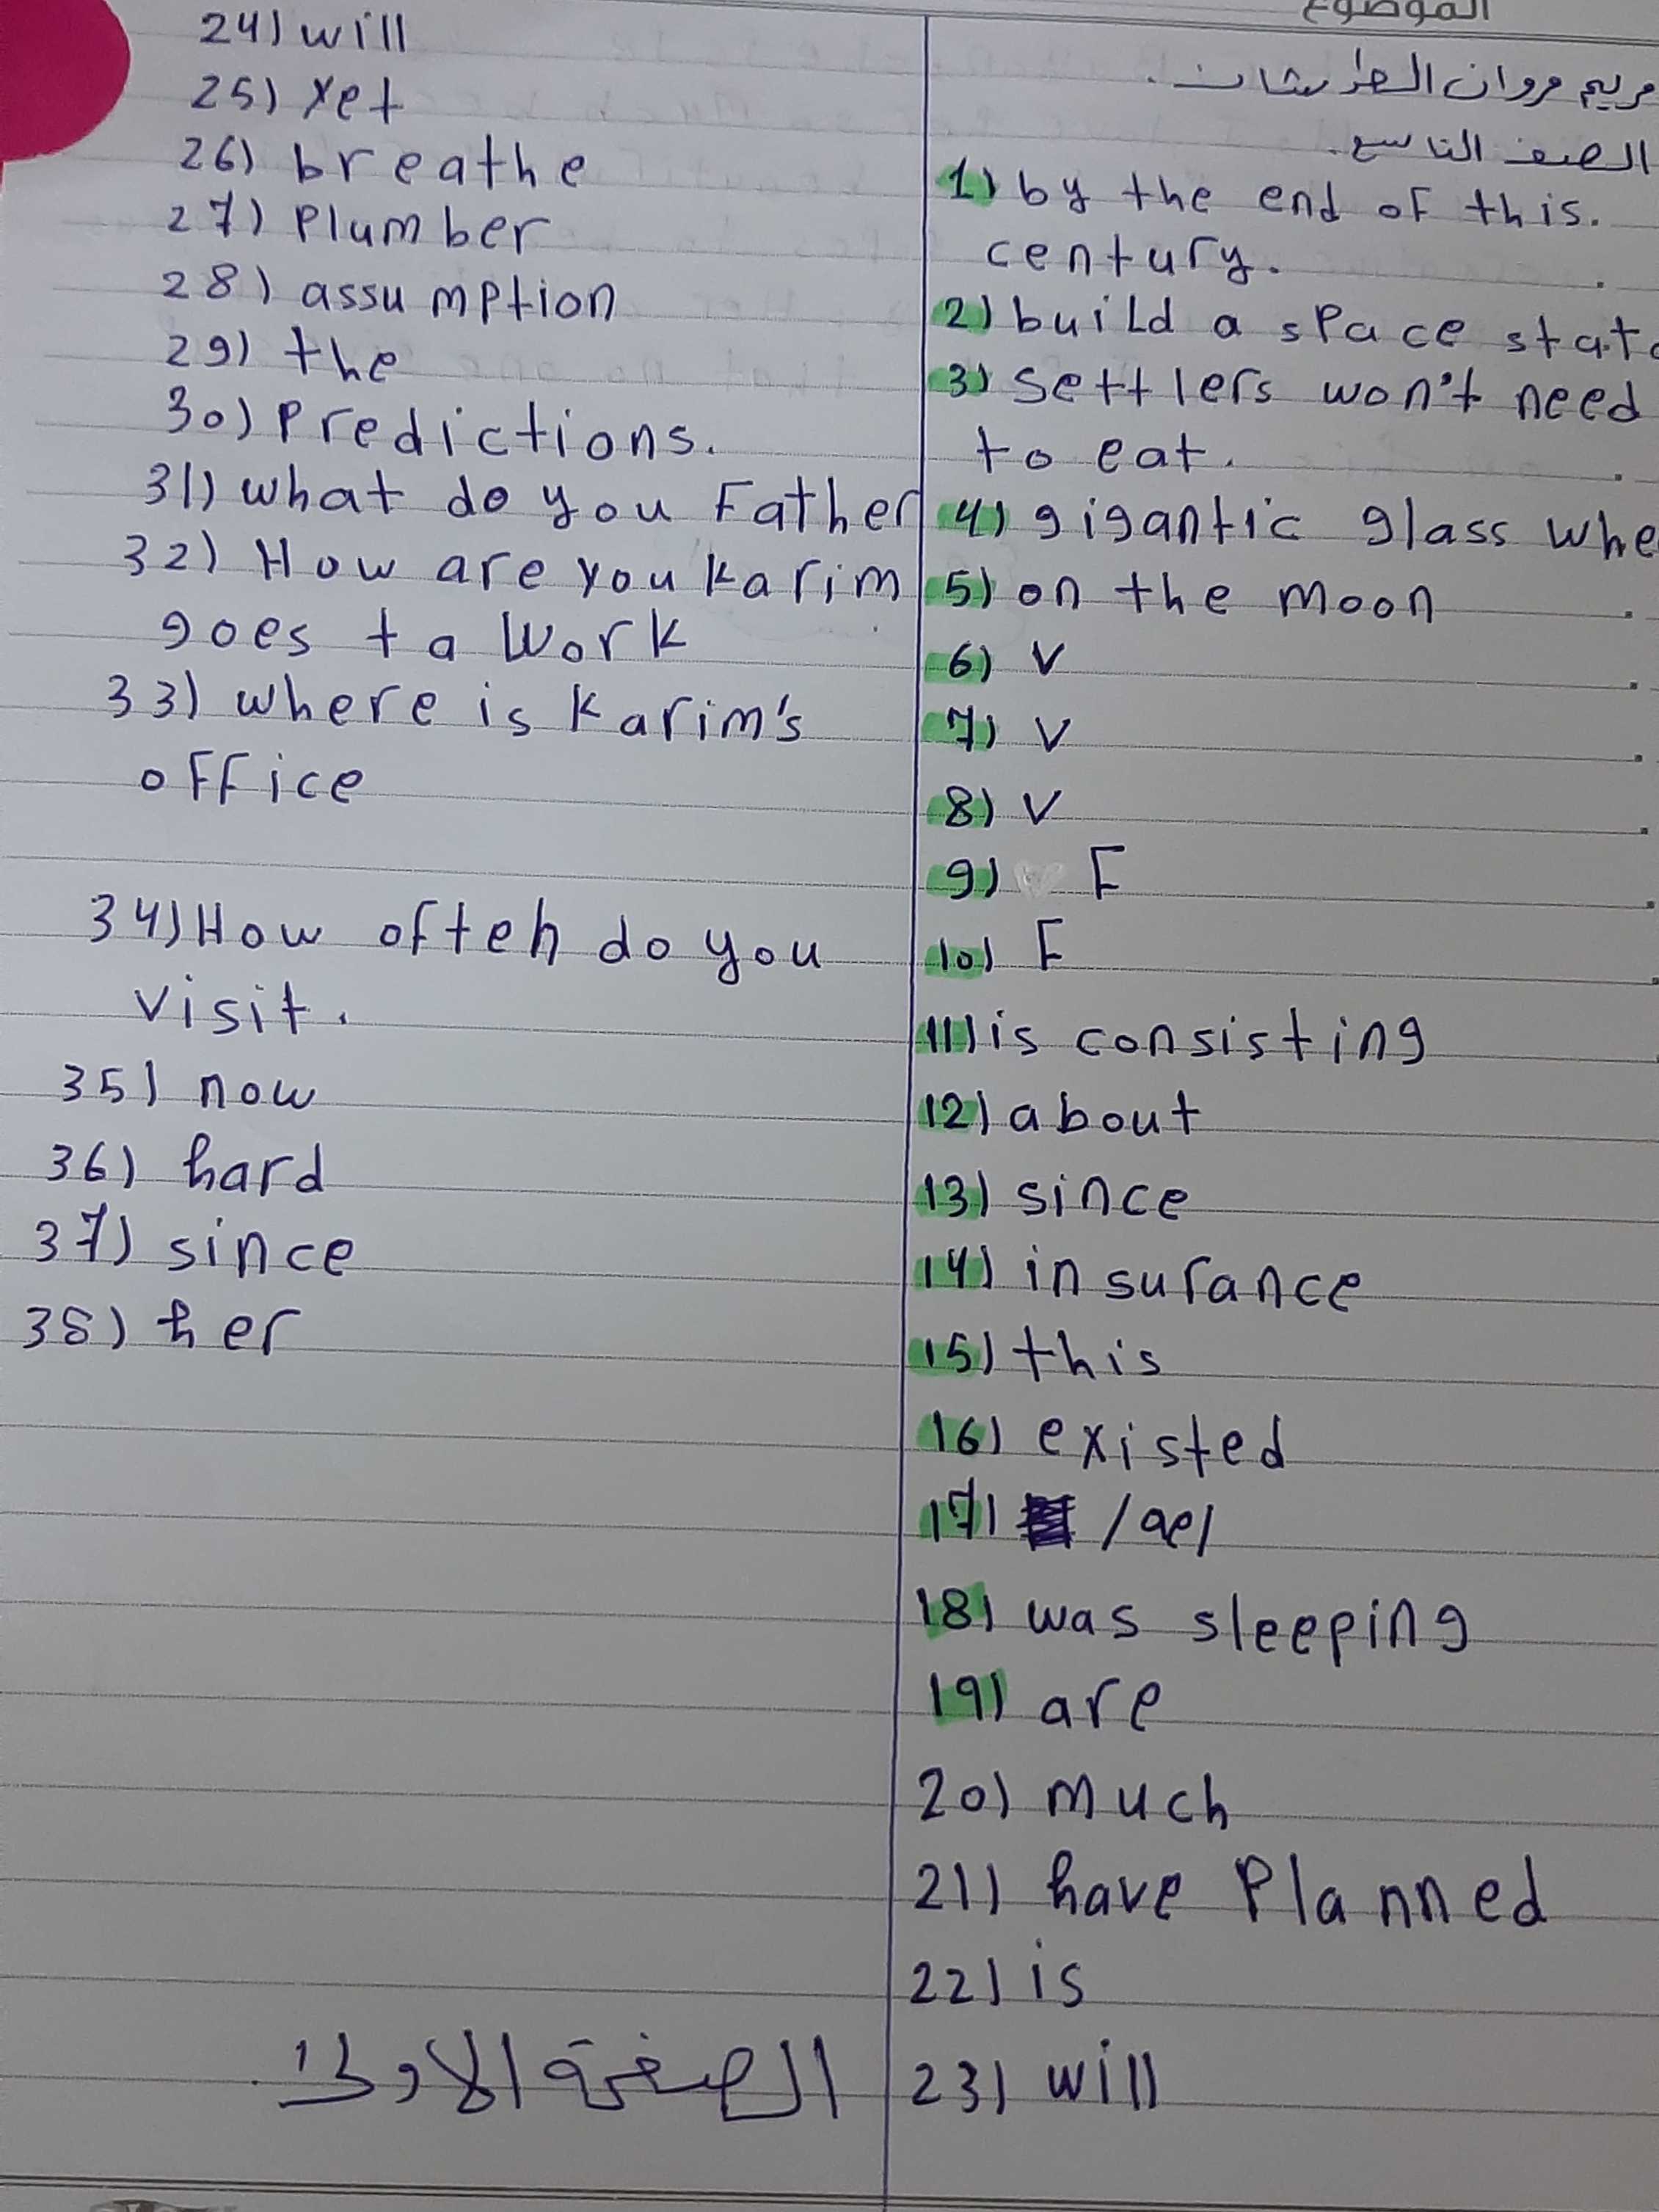 الموضوع
مريم مروان
الصف التاسع.
1) by the end of this.
century.
2) build a space
3) settlers won't need
to eat.
4) gigantic glass
5) on the moon
6) V
7) V
8) V
9) F
10) F
11) is consisting
12) about
13) since
14) insurance
15) this
16) existed
17) /ae/
18) was sleeping
19) are
20) much
21) have Planned
22) is
23) will
24) will
25) Yet
26) breathe
27) Plumber
28) assumption
29) the
30) Predictions.
31) what do you Father
32) How are you karim
goes ta Work
33) where is karim's
office
34) How often do you
visit.
35) now
36) hard
37) since
38) her
الصفحة الاولى.